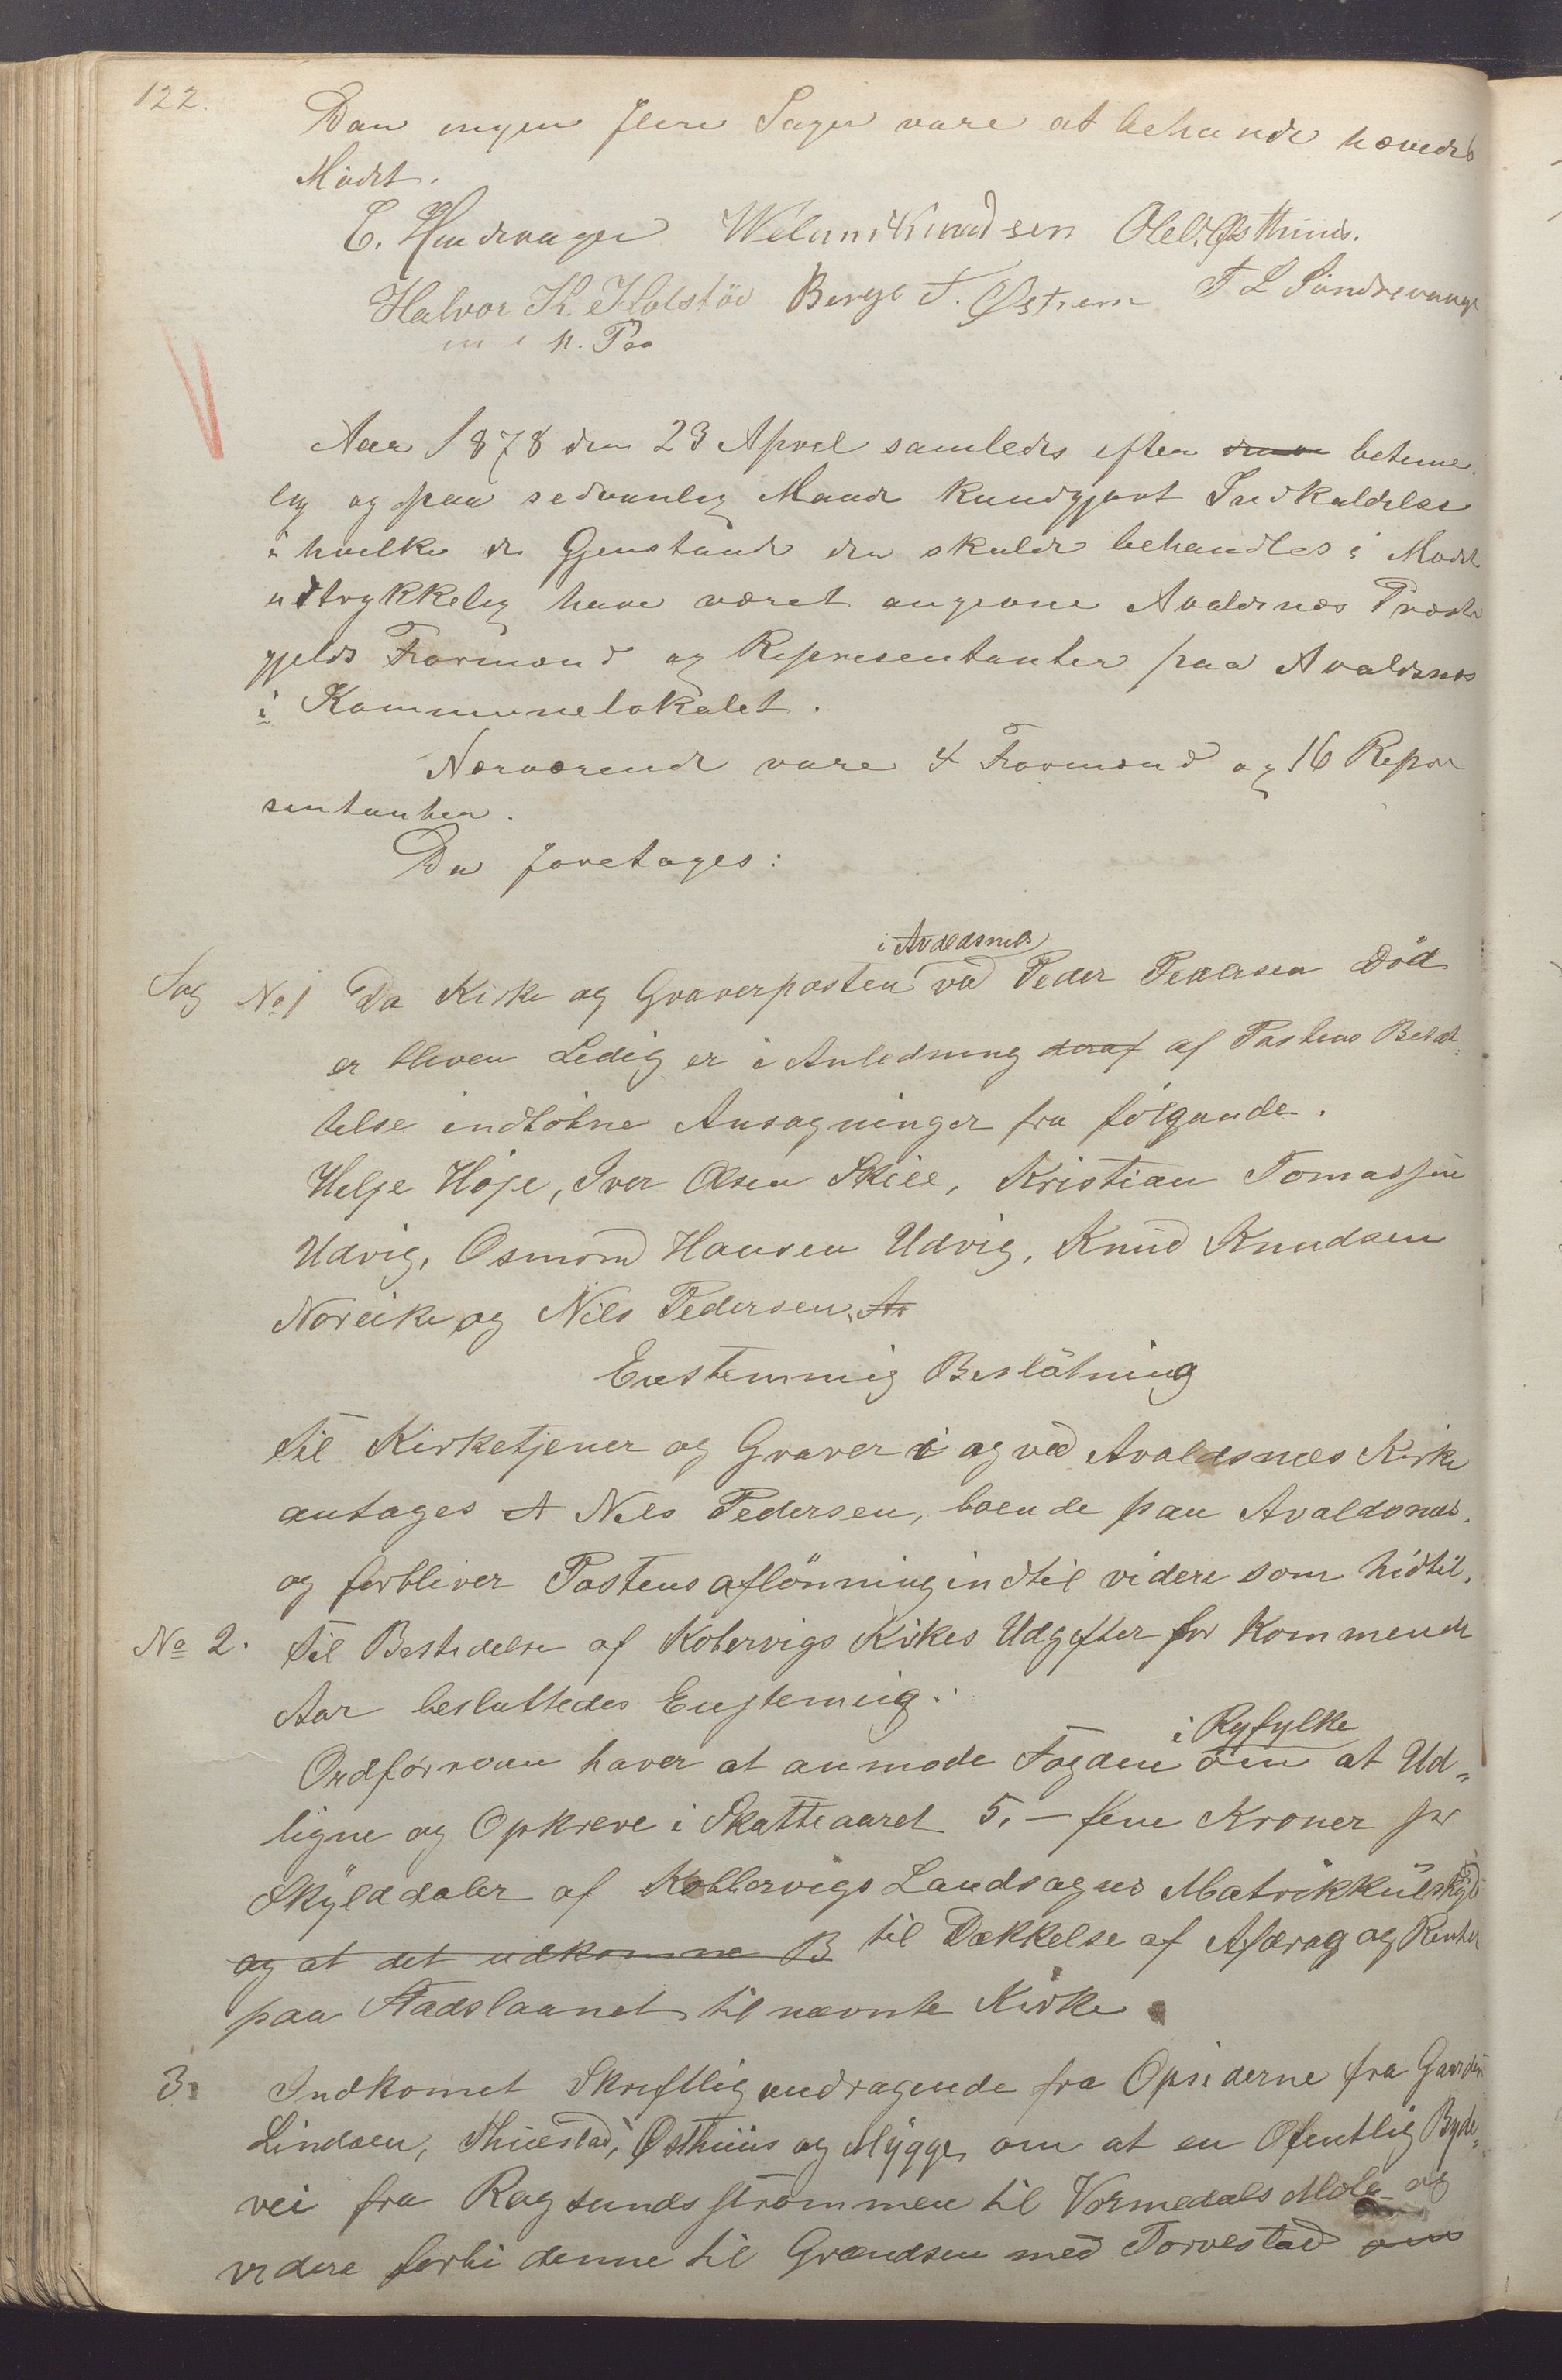 122.
Dan ingen flere Sager vare at behandl hævedes
Mödet.
C. Hindevager Welum Knudsen Ole V. Østhuus.
Halvor K. Holstöe Berge T. Østrem T L Söndrevaage
m. p. Pen
Aar 1878 den 23 April samledes efter betime
lig og paa sedvanlig Maade kundgjort Indkaldelse
i hvilke de Gjenstande der skulde behandles i Mödet
udtrykkelig have været angivne Avaldsnes Præste
gjelds Formænd og Representanter paa Avaldsnes
i Kommunelokalet.
Nærværende vare 4 Formænd og 16 Repræ
sentanter.
Da foretoges:
i Avaldsnæs
Sag No 1 Da Kirke og Graverposten ved Peder Pedersen Död
er bleven Ledig er i Anledning deraf af Postens Besæt
telse indlöbne Ansøgninger fra følgende.
Helge Höje, Iver Olsen Skiee, Kristian Tomassen
Udvig, Osmond Hansen Udvig, Knud Knudsen
Noreike og Nils Pedersen. Av
Enstemmig Beslutning
Til Kirketjener og Graver i og ved Avaldsnæs Kirke
antages A Nils Pedersen, boende paa Avaldsnæs,
og forbliver Postens aflönning indtil videre som hidtil.
No 2. Til Bestridelse af Kobervigs Kirkes Udgifter for Kommende
Aar besluttedes Enstemig:
i Ryfylke
Ordføreren haver at anmode Fogden om at Ud„
ligne og Opkreve i Skatteaaret 5. – fem Kroner pr
Skylddaler af Kobbervigs Landsogns Matrikkülskyld
og at det udkomne B til Dækkelse af Afdrag og Renter
paa Stadslaanet til nævnte Kirke.
3. Indkomet Skriftlig andragende fra Opsiderne fra Gaarden
Lindøen, Østhuus og Mygge, om at en Ofentlig Bygde„
vei fra Ragsundsströmmen til Vormedals Mölu og
videre forbi denne til Grændsen med Torvestad om